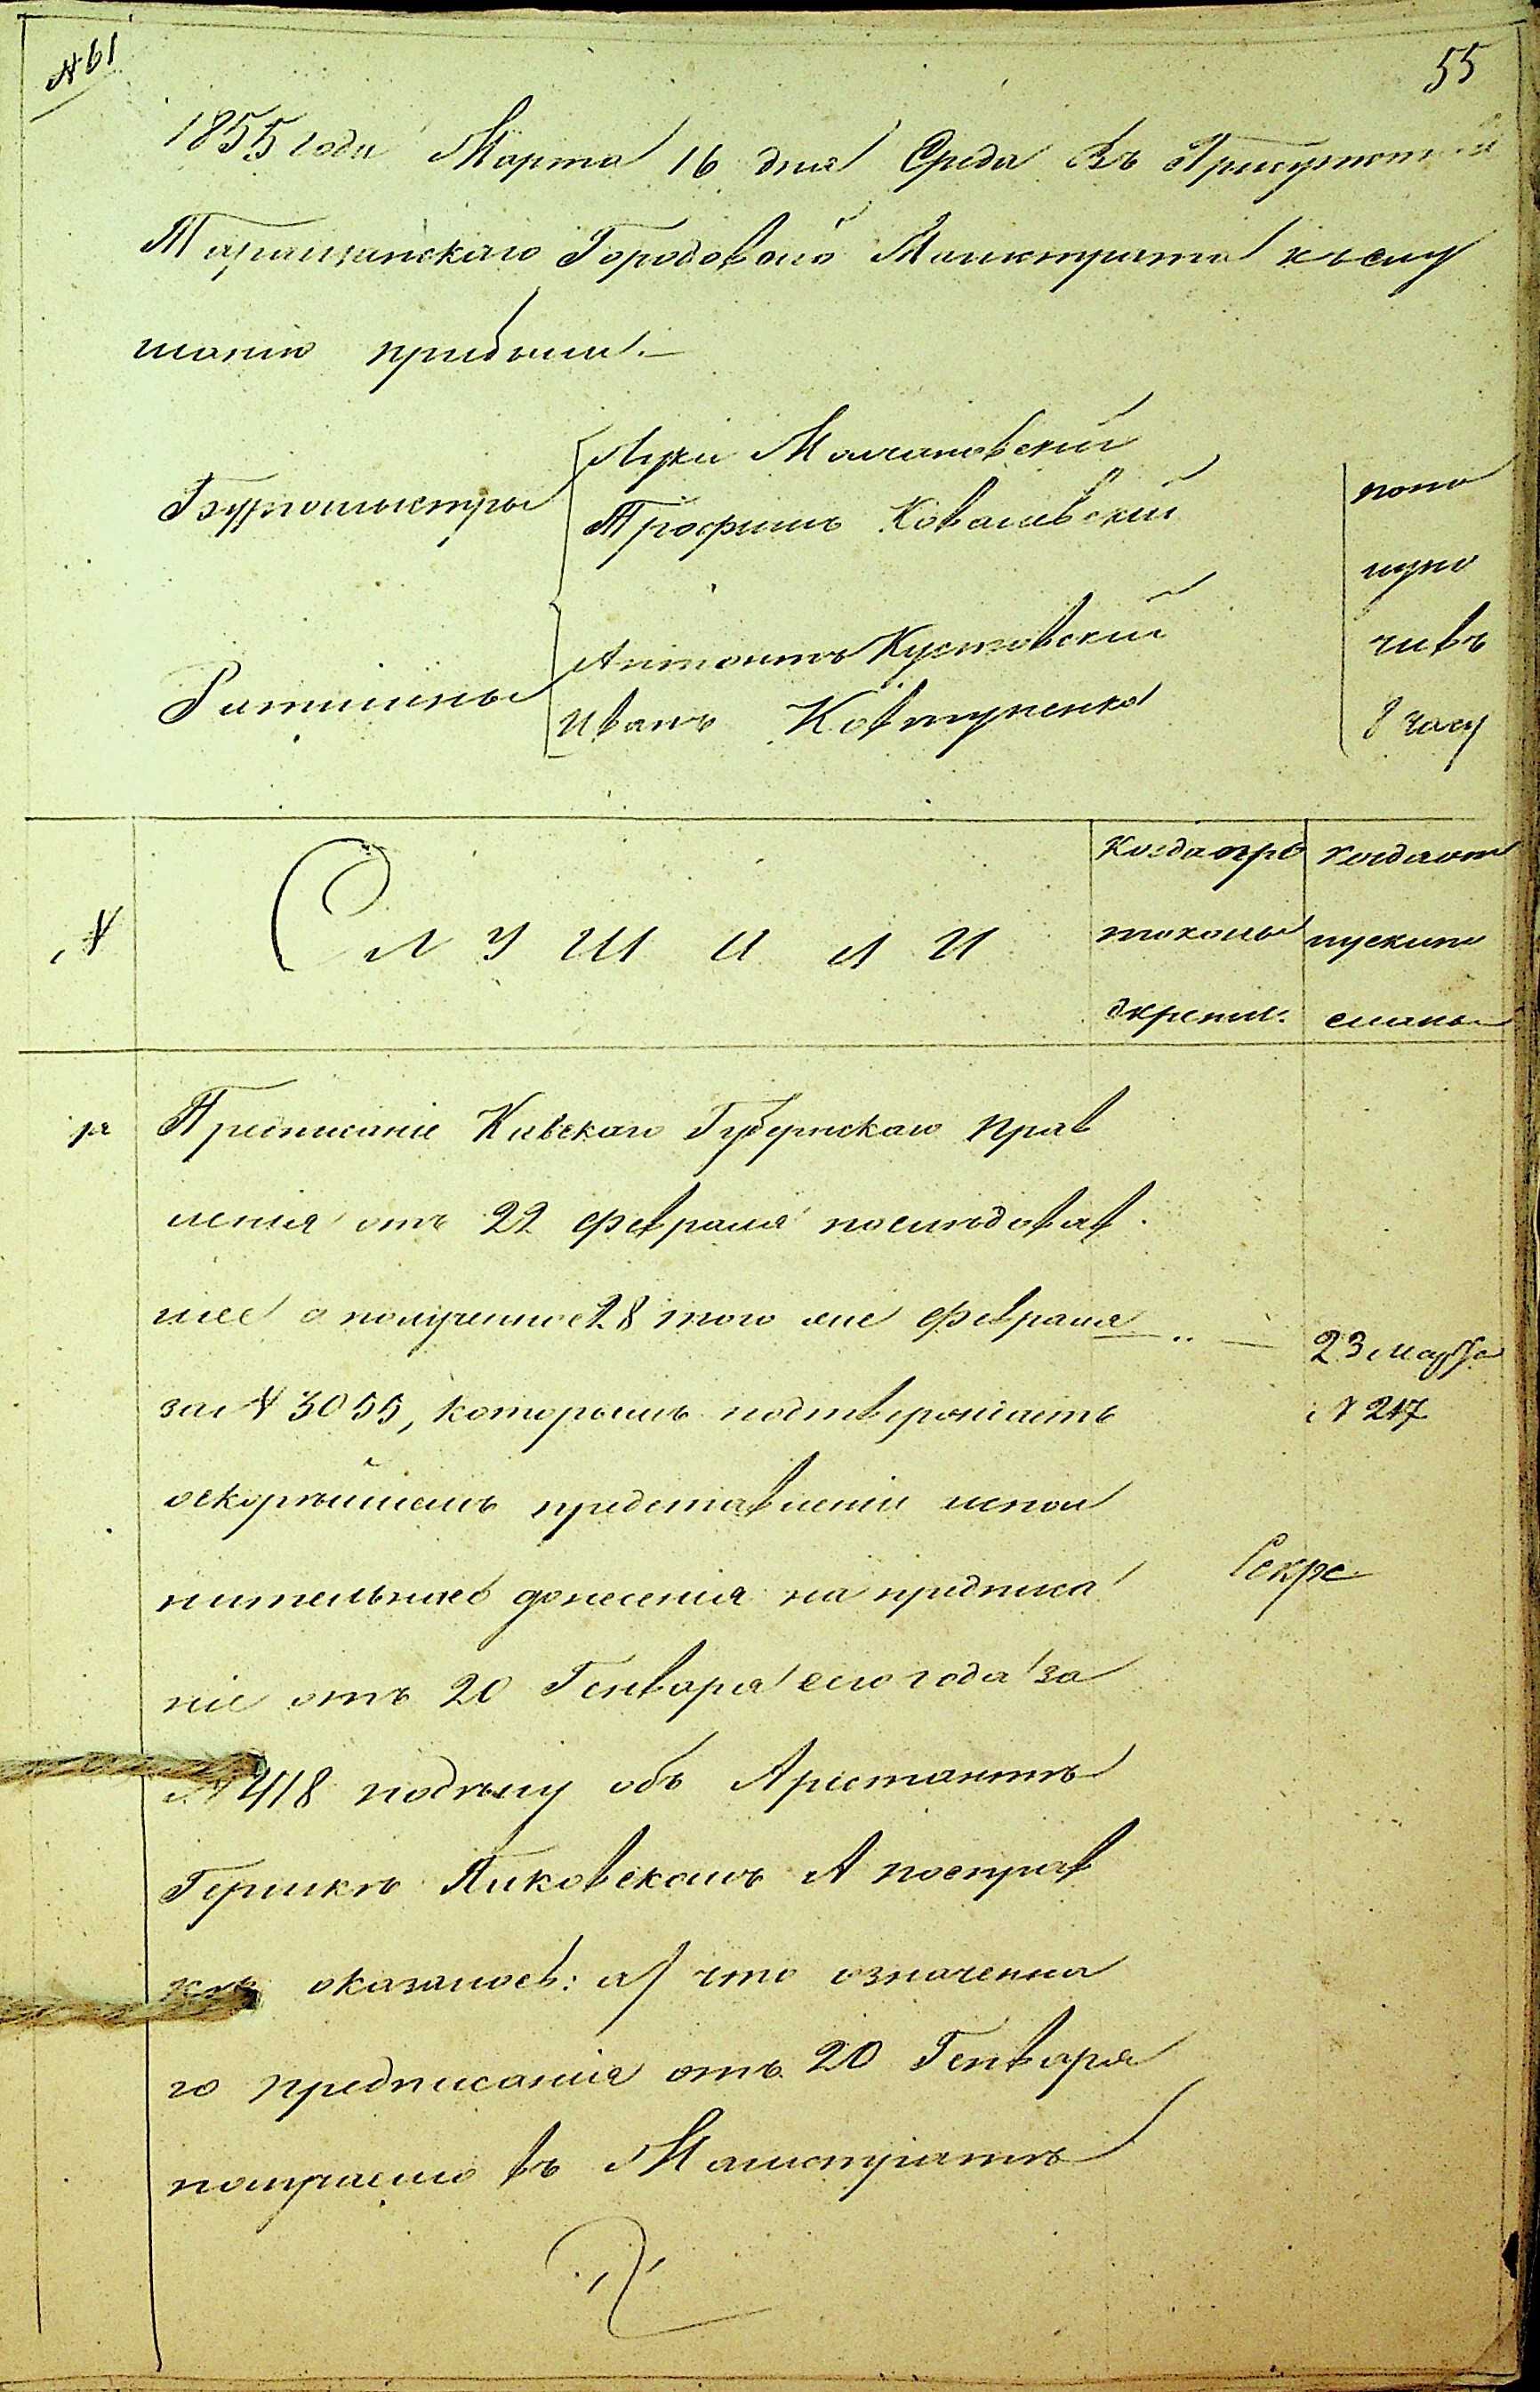 № 61
55
1855 года Марта 16 дня Среда Въ Присутствіи
Таращанскаго Городоваго Магистрата къ слу
шанію прибыли.
Бургомистры
Лука Малановскій
Трофимъ Ковалевскій
Ратманы
Антонъ Кустовскій
Иванъ Ковтуненко
попо
луно
чивъ
8 часу
№
Слушали
Когда про
токолы
скрепл:
когда от
пускипо
сланы
1е
Предписаніе Кіевскаго Губернскаго Прав
ленія отъ 22 февраля последовав
шее а полученное 28 того же февраля
за № 3055, которымъ подтверждаетъ
оскорѣйшемъ представленіи испол
нительнаго донесенія на предписа
ніе отъ 20 Генваря сего года за
№ 418 подѣлу объ Арестантѣ
Гершкѣ Пиковскомъ А посправ
кѣ оказалось: а) что означенна
го предписанія отъ 20 Генваря
получаемо въ Магистратѣ
23 марта
№ 217
Секре